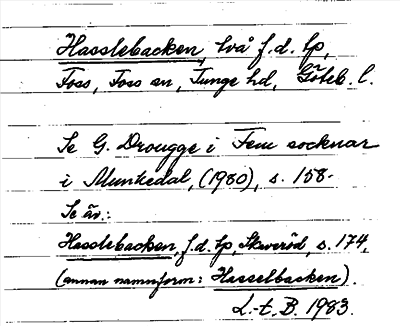 Hasslebacken, två f.d. lp,
Foss, Foss sn, Tunge hd, Göteb. l.
Se G. Drougge i Fem socknar
i Munkedal, (1980), s. 158.
Se äv.:
Hasslebacken, f.d. lp, Skaveröd, s. 174,
(annan namnform: Hasselbacken).
L.-t. B. 1983.